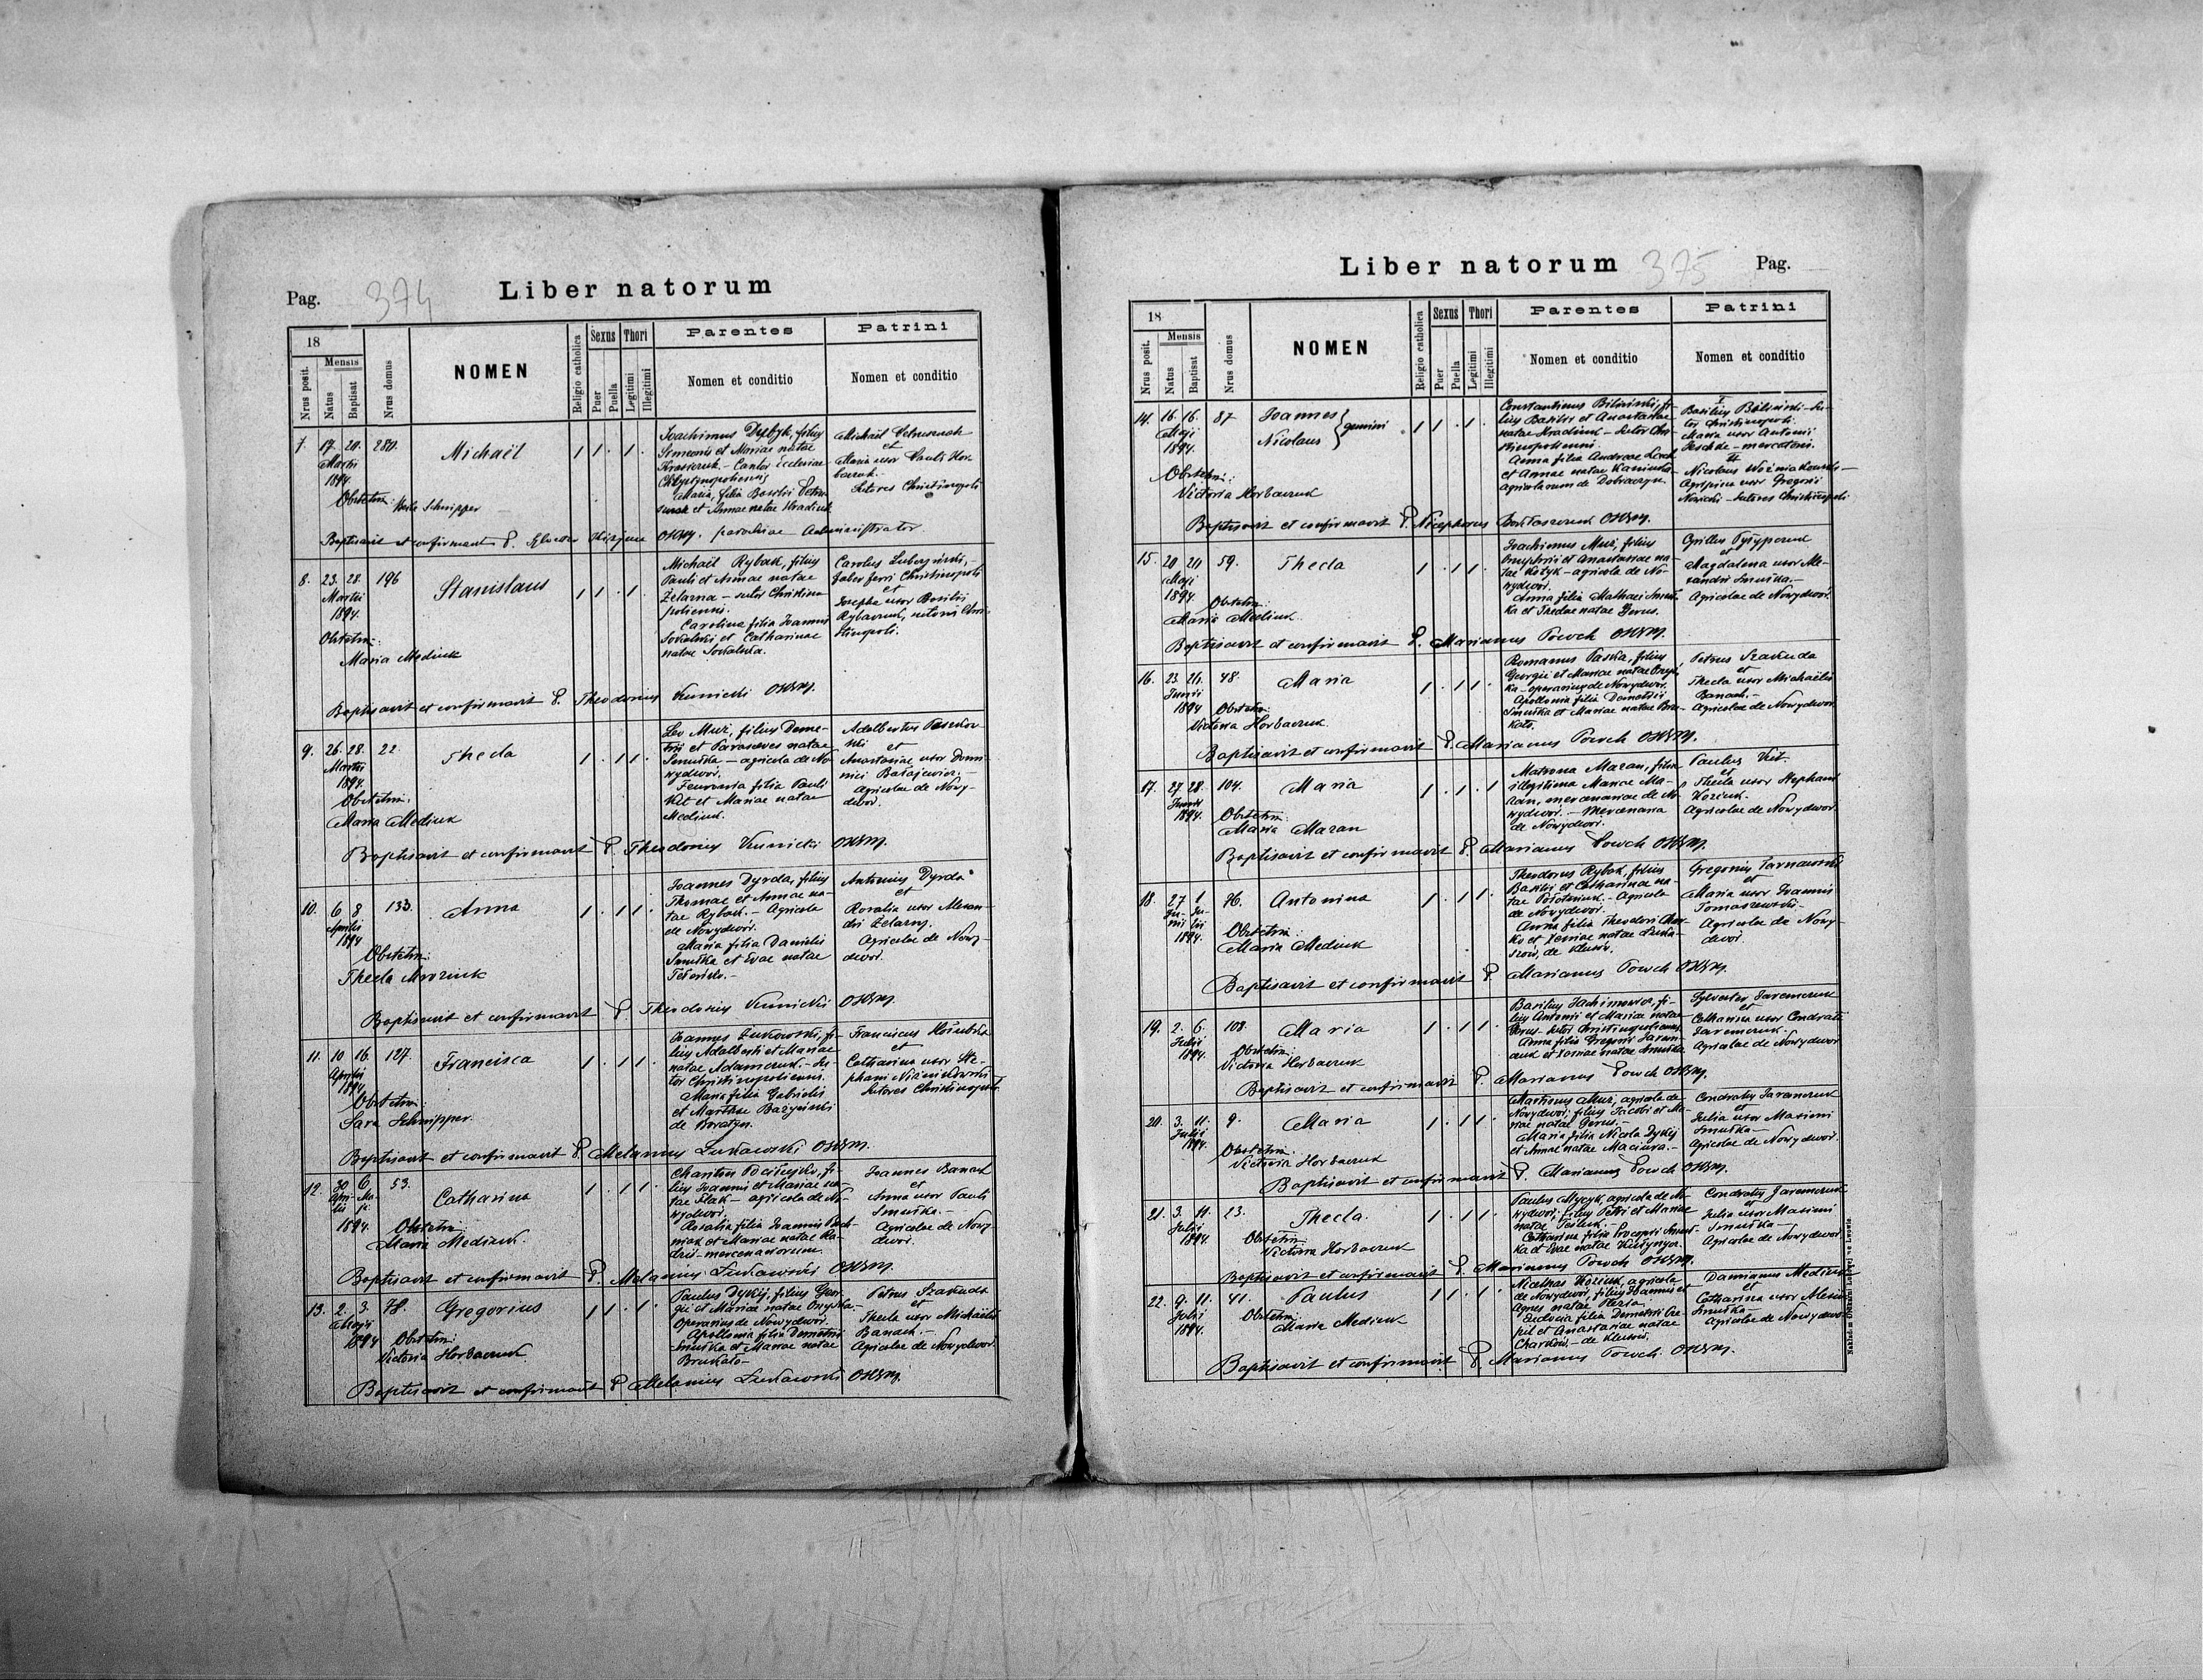 Pag. 374
Liber natorum
18
Nrus posit.
Mensis
Natus
Baptisat
Nrus domus
NOMEN
Religio catholica
Sexus
Puer
Puella
Thori
Legitimi
Illegitimi
Parentes
Nomen et conditio
Patrini
Nomen et conditio
7. 17. 20. 280. Michaël 1 1 . 1 .
Martii
1894
Obstetrix: Schnipper
filius
Simeonis et Mariae natae
Cantor Ecclesiae
Maria, filia Basilii
et Annae natae Hradiuk
Michaël
et
Maria uxor Pauli Hor-
baczuk.
Sutores Christinopoli
Baptisavit et confirmavit P. OSBM. parochiae Administrator
8. 23. 28. 196 Stanislaus 1 1 . 1 .
Martii
1894.
Obstetrix:
Maria Mediuk
Michaël Rybak, filius
Pauli et Annae natae
Żelazna – sutor Christino
poliensis.
Carolina filia Joannis
Sokalski et Catharinae
natae Sokalska.
Carolus
faber ferri Christinopoli
et
Josepha uxor Basilii
Baptisavit et confirmavit P. Theodosius Kunicki OSBM.
9. 26. 28. 22. Thecla 1 . 1 1 .
Martii
1894.
Obstetrix:
Maria Mediuk
Leo Muz, filius Deme-
trii et Parasceves natae
Smuƚka – agricola de No
wydwór.
filia Pauli
Kit et Mariae natae
Mediuk.
Adalbertus
et
Anastasiae uxor Domi-
nici
Agricolae de Nowy-
dwór.
Baptisavit et confirmavit P. Theodosius Kunicki OSBM.
10. 6 8 133. Anna 1 . 1 1 .
Aprilis
1894
Obstetrix:
Thecla Mroziuk
Joannes Dyrda, filius
Thomae et Annae na-
tae Rybak. – Agricola
de Nowydwór.
Maria filia Danielis
Smuƚka et Evae natae
Antonius Dyrda
et
Rosalia uxor Alexan-
dri Żelazny.
Agricolae de Nowy-
dwór.
Baptisavit et confirmavit P. Theodosius Kunicki OSBM.
11. 10 16. 127. Francisca 1 . 1 1 .
Aprilis
1894
Obstetrix:
Sara Schnipper.
Joannes Żukowski, fi-
lius Adalberti et Mariae
natae Adamczuk. – Su-
tor Christinopoliensis.
Maria filia Gabrielis
et Marthae
de Boratyn.
Franciscus
et
Catharina uxor Ste-
phani
Sutores Christinopoli
Baptisavit et confirmavit P. Melanius Łukawski OSBM.
12. 30 6 53. Catharina 1 . 1 1 .
Apri- Ma-
lis ji
1894. Obstetrix
Maria Mediuk.
fi-
lius Joannis et Mariae na-
tae – agricola de No
wydwór.
Rosalia filia Joannis
et Mariae natae
– mercenariorum.
Joannes Banach
et
Anna uxor Pauli
Smuƚka. –
Agricolae de Nowy-
dwór.
Baptisavit et confirmavit P. Melanius Łukawski OSBM.
13. 2. 3. 78. Gregorius 1 1 . 1 .
Maji
1894 Obstetrix:
Victoria Horbaczuk
Paulus Dykij, filius Geor-
gii et Mariae natae
Operarius de Nowydwór.
Apollonia filia Demetrii
Smuƚka et Mariae natae
Brukaƚo –
Petrus Szakuda
et
Thecla uxor Michaëlis
Banach. –
Agricolae de Nowydwór.
Baptisavit et confirmavit P. Melanius Łukawski OSBM.
Liber natorum 375 Pag.
18
Nrus posit.
Mensis
Natus
Baptisat
Nrus domus
NOMEN
Religio catholica
Sexus
Puer
Puella
Thori
Legitimi
Illegitimi
Parentes
Nomen et conditio
Patrini
Nomen et conditio
14. 16. 16. 87 Joannes } gemini 1 1 . 1 .
Maji Nicolaus
1894.
Obstetrix:
Victoria Horbaczuk
Constantinus Biliński, fi-
lius Basilii et Anastasiae
natae Hradiuk – Sutor Chri-
stinopoliensis.
Anna filia Andreae
et Annae natae
agricolarum de Dobraczyn.
I
Basilius Biliński – Su-
tor Christinopoli.
Maria uxor Antonii
– mercatoris.
II
Nicolaus
Agrippina uxor Gregorii
– sutores Christinopoli
Baptisavit et confirmavit P. Nicephorus OSBM.
15. 20 24 59. Thecla 1 . 1 1 .
Maji
1894 Obstetrix:
Maria Mediuk
Joachimus Muz, filius
Dmytrii et Anastasiae na-
tae – agricola de No-
wydwór.
Anna filia Mathaei Smuƚ-
ka et Theclae natae Gerus.
Cyrillus
et
Magdalena uxor Ale-
xandri Smuƚka. –
Agricolae de Nowydwór.
Baptisavit et confirmavit P. Marianus Powch OSBM.
16. 23. 24. 48. Maria 1 . 1 1 .
Junii
1894 Obstetrix:
Victoria Horbaczuk
Romanus filius
Georgii et Mariae natae
– operarius de Nowydwór.
Apollonia filia Demetrii
Smuƚka et Mariae natae Bru-
kaƚo.
Petrus Szakuda
et
Thecla uxor Michaëlis
Banach. –
Agricolae de Nowydwór
Baptisavit et confirmavit P. Marianus Powch OSBM.
17. 27. 28. 104. Maria 1 . 1 . 1
Junii
1894. Obstetrix:
Maria Mazan
Matrona Mazan, filia
illegitima Mariae Ma-
zan, mercenariae de No-
wydwór. – Mercenaria
de Nowydwór.
Paulus Kit.
et
Thecla uxor Stephani
Koziuk. –
Agricolae de Nowydwór
Baptisavit et confirmavit P. Marianus Powch OSBM.
18. 27 1 76. Antonina 1 . 1 1 .
Ju- Ju-
nii lii
1894. Obstetrix:
Maria Mediuk
Theodorus Rybak, filius
Basilii et Catharinae na-
tae – Agricola
de Nowydwór.
Anna filia Theodori
et Xeniae natae
de Klusów.
Gregorius Tarnawski
et
Maria uxor Joannis
Tomaszewski. –
Agricolae de Nowy-
dwór.
Baptisavit et confirmavit P. Marianus Powch OSBM.
19. 2. 6. 108. Maria 1 . 1 1 .
Julii
1894. Obstetrix:
Victoria Horbaczuk
Basilius Jachimowicz, fi-
lius Antonii et Mariae natae
Gerus – sutor Christinopolianus
Anna filia Gregorii Jarem-
czuk et Xeniae natae Smuƚka.
Sylvester Jaremczuk
et
Catharina uxor Condrati
Jaremczuk. –
Agricolae de Nowydwór
Baptisavit et confirmavit P. Marianus Powch OSBM.
20. 3. 11. 9. Maria 1 . 1 1 .
Julii
1894. Obstetrix:
Victoria Horbaczuk
Martinus Muz, agricola de
Nowydwór, filius Jacobi et Ma-
riae natae Gerus. –
Maria filia Nicolai Dykij
et Annae natae Maciura. –
Condratus Jaremczuk
et
Julia uxor Maximi
Smuƚka –
Agricolae de Nowydwór.
Baptisavit et confirmavit P. Marianus Powch OSBM.
21. 3. 11. 23. Thecla. 1 . 1 1 .
Julii
1894 Obstetrix:
Victoria Horbaczuk
Paulus Mycyk, agricola de No-
wydwór, filius Petri et Mariae
natae
Catharina filia Procopii Smuƚ-
ka et Evae natae
Condratus Jaremczuk
et
Julia uxor Maximi
Smuƚka –
Agricolae de Nowydwór
Baptisavit et confirmavit P. Marianus Powch OSBM.
22. 9. 11. 41. Paulus 1 1 . 1 .
Julii Obstetrix:
1894. Maria Mediuk
Koziuk, agricola
de Nowydwór, filius Joannis et
Agnes natae
Eudocia filia Demetrii
et Anastasiae natae
– de Klusów.
Damianus Mediuk
et
Catharina uxor
Smuƚka –
Agricolae de Nowydwór
Baptisavit et confirmavit P. Marianus Powch. OSBM.